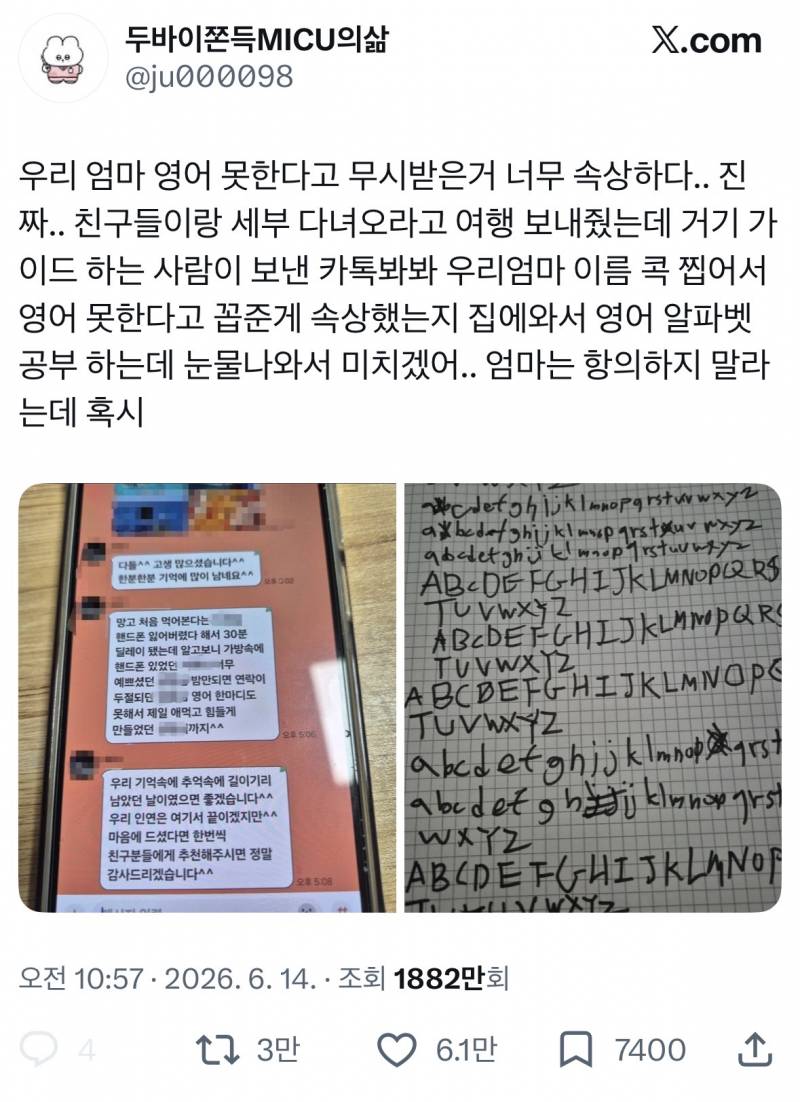 두바이쫀득MICU의삶
@ju000098
X.com
우리 엄마 영어 못한다고 무시받은거 너무 속상하다.. 진
짜.. 친구들이랑 세부 다녀오라고 여행 보내줬는데 거기 가
이드 하는 사람이 보낸 카톡봐봐 우리엄마 이름 콕 찝어서
영어 못한다고 꼽준게 속상했는지 집에와서 영어 알파벳
공부 하는데 눈물나와서 미치겠어.. 엄마는 항의하지 말라
는데 혹시
다들^^ 고생 많으셨습니다^^
한분한분 기억에 많이 남네요^^
오후 5:02
망고 처음 먹어본다는
핸드폰 잃어버렸다 해서 30분
딜레이 됐는데 알고보니 가방속에
핸드폰 있었던 너무
예쁘셨던 밤만되면 연락이
두절되던 영어 한마디도
못해서 제일 애먹고 힘들게
만들었던 까지^^
오후 5:06
우리 기억속에 추억속에 길이기리
남았던 날이였으면 좋겠습니다^^
우리 인연은 여기서 끝이겠지만^^
마음에 드셨다면 한번씩
친구분들에게 추천해주시면 정말
감사드리겠습니다^^
오후 5:08
cdefghijklmnopqrstuvwxyz
a bcdefghijklmnopqrst uvwxyz
abcdefghijklmnopqrstuvwxyz
ABCDEFGHIJKLMNOPQRS
TUVWXYZ
ABCDEFGHIJKLMNOPQRS
TUVWXYZ
ABCDEFGHIJKLMNOPQ
TUVWXYZ
abcdefghijklmnop qrst
abcdefgh ijklmnopqrst
WXYZ
ABCDEFGHIJKLMNOP
오전 10:57 · 2026. 6. 14. · 조회 1882만회
4
3만
6.1만
7400